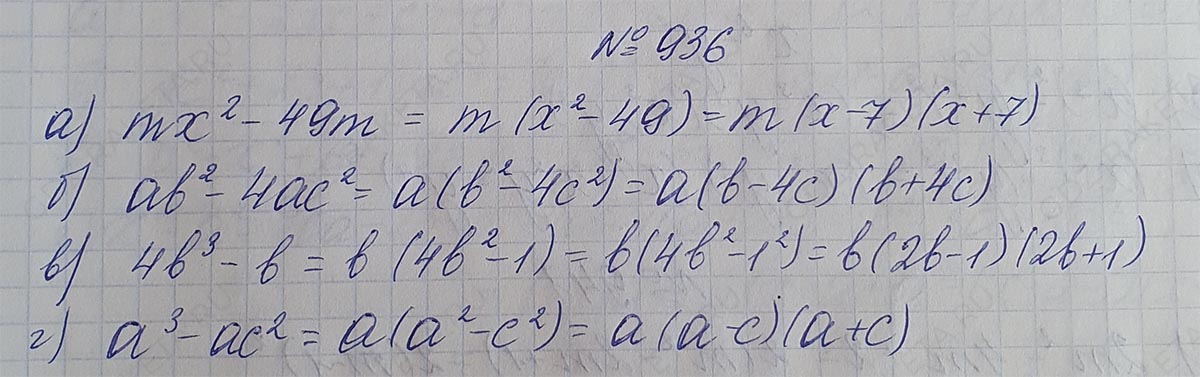 № 936
а) mx² - 49m = m(x² - 49) = m(x-7)(x+7)
б) ab² - 4ac² = a(b² - 4c²) = a(b-4c)(b+4c)
в) 4b³ - b = b(4b² - 1) = b(4b² - 1²) = b(2b-1)(2b+1)
г) a³ - ac² = a(a² - c²) = a(a-c)(a+c)